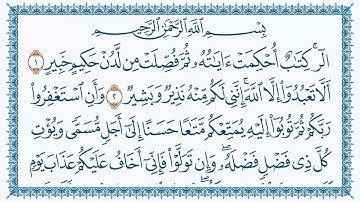 بِسْمِ ٱللَّهِ ٱلرَّحْمَٰنِ ٱلرَّحِيمِ
الٓر ۚ كِتَٰبٌ أُحْكِمَتْ ءَايَٰتُهُۥ ثُمَّ فُصِّلَتْ مِن لَّدُنْ حَكِيمٍ خَبِيرٍ ١
أَلَّا تَعْبُدُوٓا۟ إِلَّا ٱللَّهَ ۚ إِنَّنِى لَكُم مِّنْهُ نَذِيرٌ وَبَشِيرٌ ٢ وَأَنِ ٱسْتَغْفِرُوا۟
رَبَّكُمْ ثُمَّ تُوبُوٓا۟ إِلَيْهِ يُمَتِّعْكُم مَّتَٰعًا حَسَنًا إِلَىٰٓ أَجَلٍ مُّسَمًّى وَيُؤْتِ
كُلَّ ذِى فَضْلٍ فَضْلَهُۥ ۖ وَإِن تَوَلَّوْا۟ فَإِنِّىٓ أَخَافُ عَلَيْكُمْ عَذَابَ يَوْمٍ